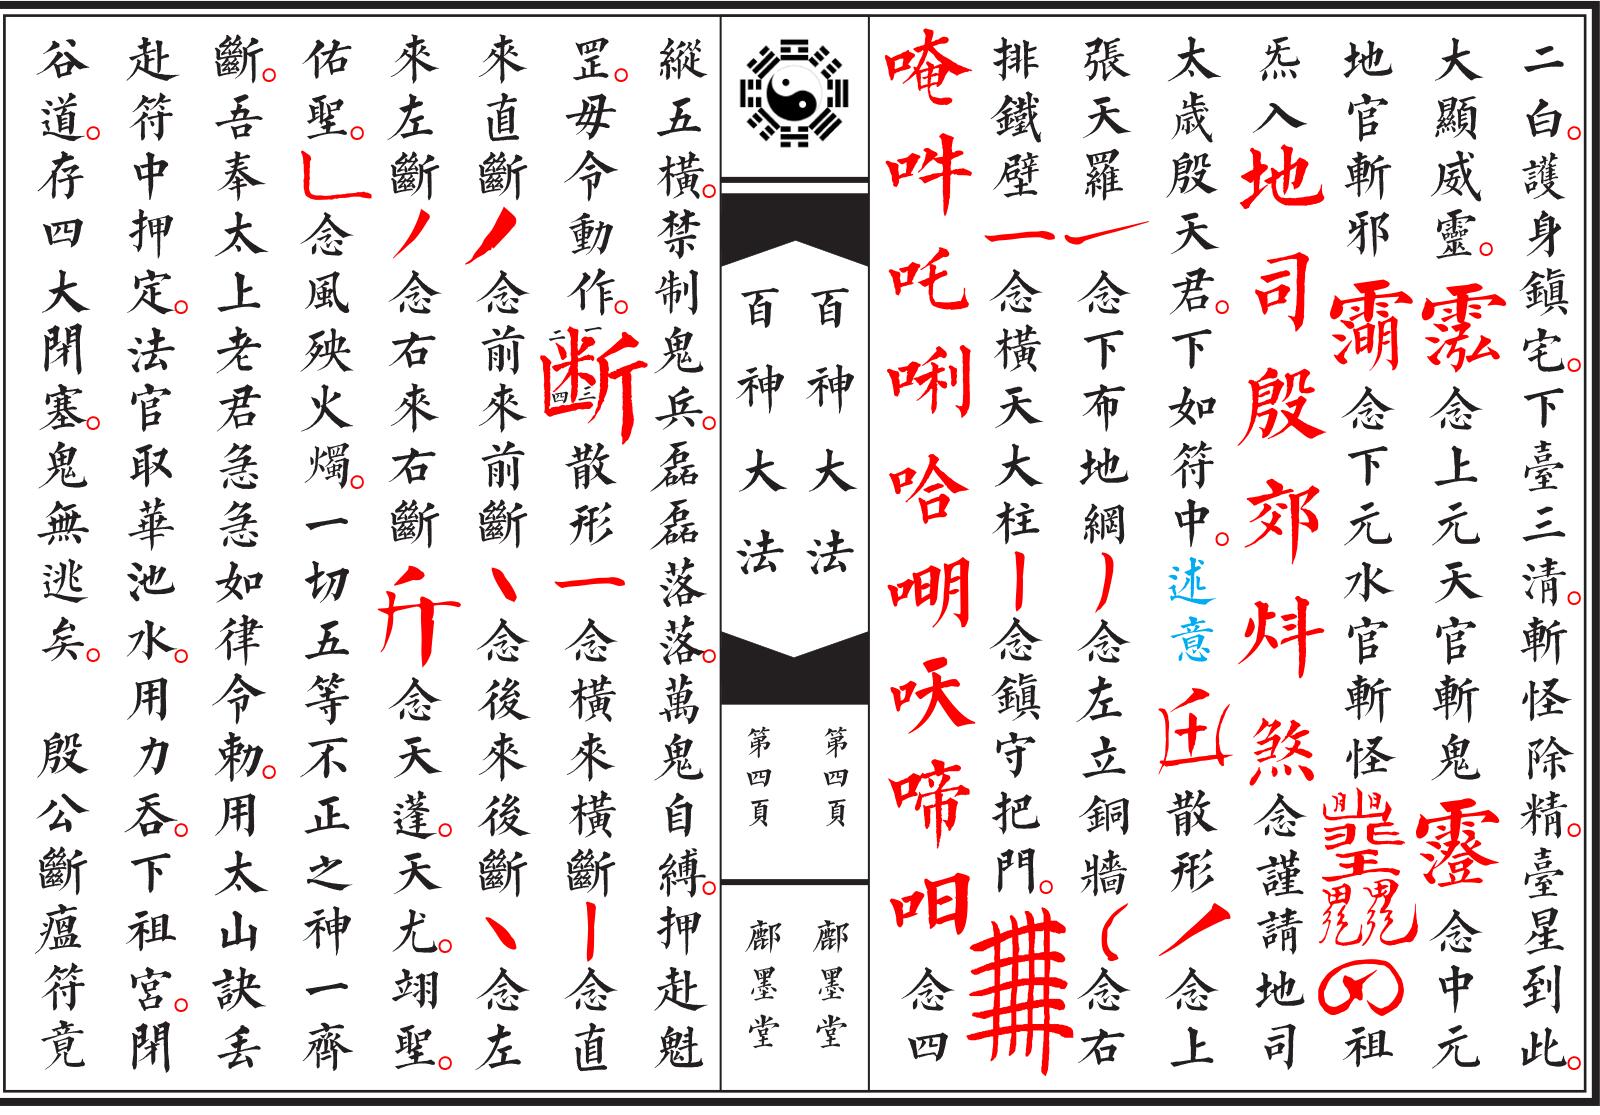 二白。護身鎮宅。下臺三清。斬怪除精。臺星到此。
大顯威靈。念上元天官斬鬼念中元
地官斬邪念下元水官斬怪祖
炁入地司殷郊炓煞念謹請地司
太歲殷天君。下如符中。述意散形念上
張天羅念下布地網念左立銅牆念右
排鐵壁念橫天大柱念鎮守把門。
唵吽吒唎哈𠵇吠啼呾念四
百神大法
百神大法
第四頁
第四頁
鄜墨堂
鄜墨堂
縱五橫。禁制鬼兵。磊磊落落。萬鬼自縛。押赴魁
罡。毋令動作。断一二三四散形念橫來橫斷念直
來直斷念前來前斷念後來後斷念左
來左斷念右來右斷念天蓬。天尤。翊聖。
佑聖。念風殃火燭。一切五等不正之神一齊
斷。吾奉太上老君急急如律令勅。用太山訣丢
赴符中押定。法官取華池水。用力吞。下祖宮。閉
谷道。存四大閉塞。鬼無逃矣。 殷公斷瘟符竟